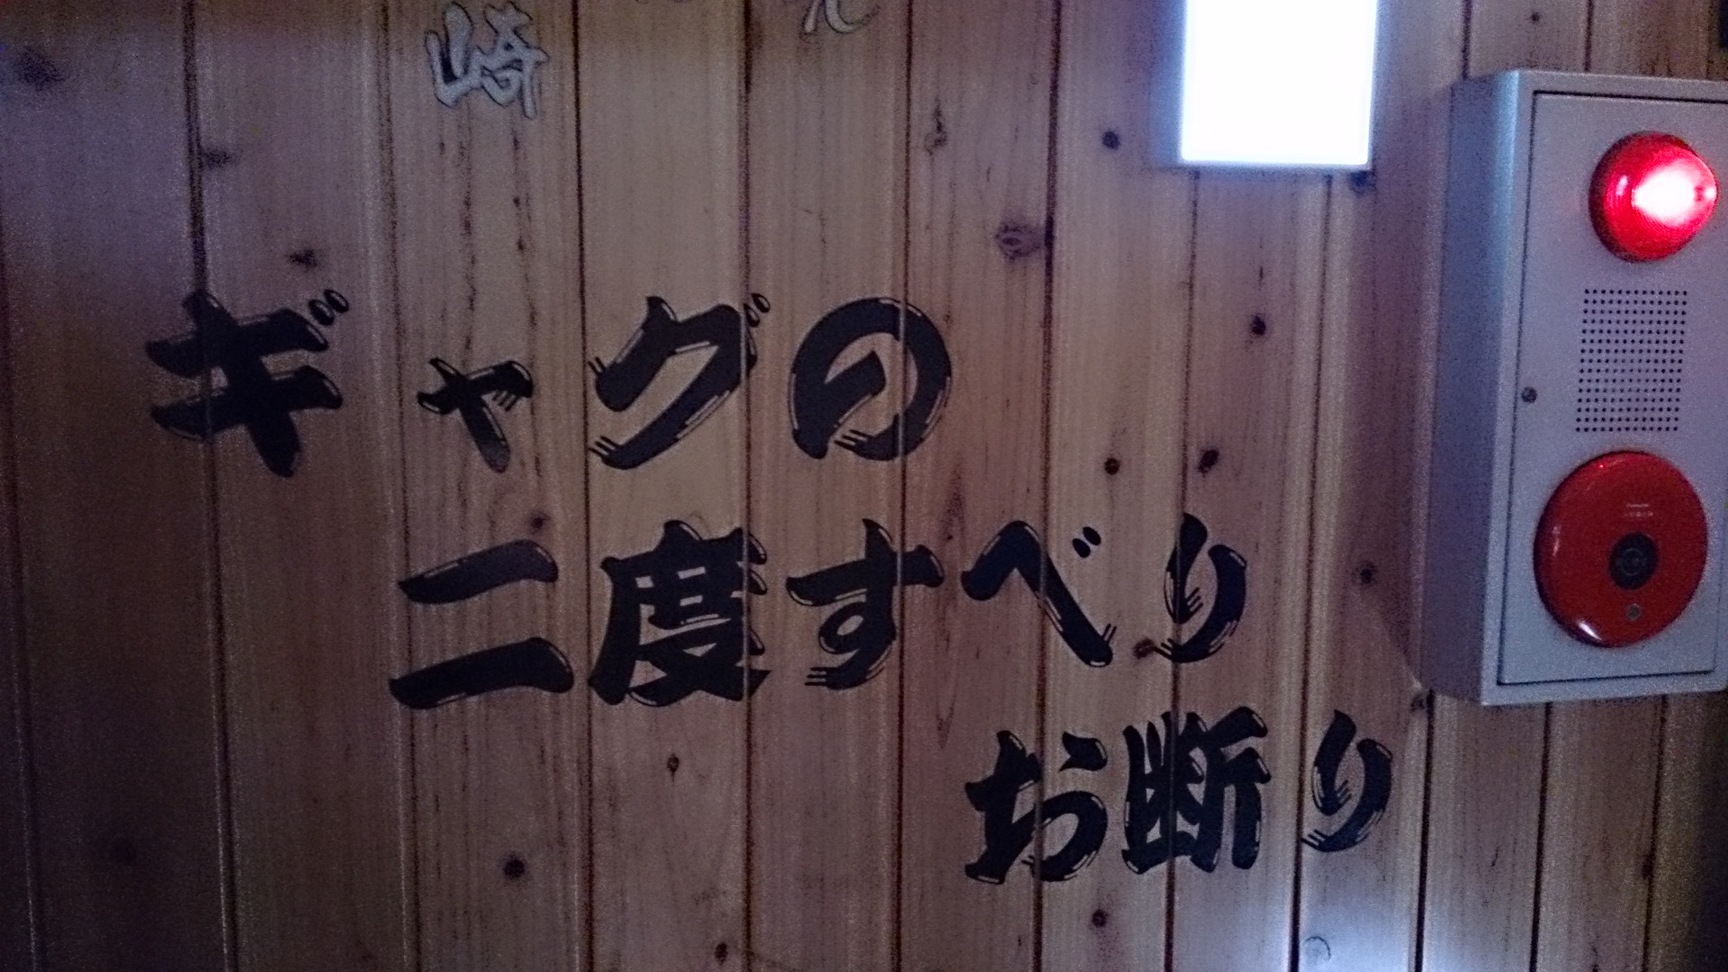 崎
ギャグの
二度すべり
お断り